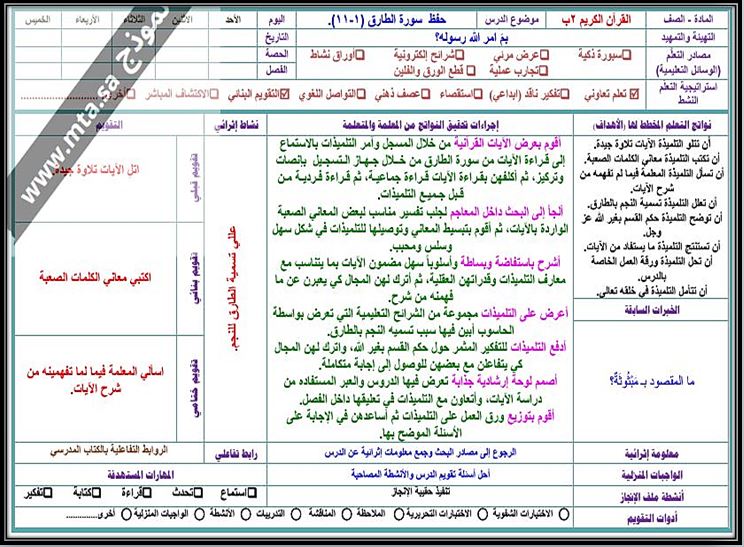 المادة - الصف
القرآن الكريم ٢ب
موضوع الدرس
حفظ سورة الطارق (١-١١).
اليوم
الأحد
الاثنين
الثلاثاء
الأربعاء
الخميس
التهيئة والتمهيد
بم أمر الله رسوله؟
التاريخ
مصادر التعلم
(الوسائل التعليمية)
سبورة ذكية
عرض مرئي
شرائح إلكترونية
أوراق نشاط
تجارب عملية
قطع الورق والفلين
الحصة
الفصل
استراتيجية التعلم
النشط
تعلم تعاوني
تفكير ناقد (إبداعي)
استقصاء
عصف ذهني
التواصل اللغوي
التقويم البنائي
الاكتشاف المباشر
أخرى
نواتج التعلم المخطط لها (الأهداف)
إجراءات تحقيق النواتج من المعلمة والمتعلمة
نشاط إثرائي
التقويم
أن تتلو التلميذة الآيات تلاوة جيدة.
أن تكتب التلميذة معاني الكلمات الصعبة.
أن تسأل التلميذة المعلمة فيما لم تفهمه من
شرح الآيات.
أن تعلل التلميذة تسمية النجم بالطارق.
أن توضح التلميذة حكم القسم بغير الله عز
وجل.
أن تستنتج التلميذة ما يستفاد من الآيات.
أن تحل التلميذة ورقة العمل الخاصة
بالدرس.
أن تتأمل التلميذة في خلقه تعالى.
الخبرات السابقة
ما المقصود بـ مَبْثُوثَةٌ؟
أقوم بعرض الآيات القرآنية من خلال المسجل وآمر التلميذات بالاستماع
إلى قراءة الآيات من سورة الطارق من خلال جهاز التسجيل بإنصات
وتركيز، ثم أكلفهن بقراءة الآيات قراءة جماعية، ثم قراءة فردية من
قبل جميع التلميذات.
ألجأ إلى البحث داخل المعاجم لجلب تفسير مناسب لبعض المعاني الصعبة
الواردة بالآيات، ثم أقوم بتبسيط المعاني وتوصيلها للتلميذات في شكل سهل
وسلس ومحبب.
أشرح باستفاضة وبساطة وأسلوباً سهل مضمون الآيات بما يتناسب مع
معارف التلميذات وقدراتهن العقلية، ثم أترك لهن المجال كي يعبرن عن ما
فهمنه من شرح.
أعرض على التلميذات مجموعة من الشرائح التعليمية التي تعرض بواسطة
الحاسوب أبين فيها سبب تسميه النجم بالطارق.
أدفع التلميذات للتفكير المثمر حول حكم القسم بغير الله، واترك لهن المجال
كي يتفاعلن مع بعضهن للوصول إلى إجابة متكاملة.
أصمم لوحة إرشادية جذابة تعرض فيها الدروس والعبر المستفاده من
دراسة الآيات، وأتعاون مع التلميذات في تعليقها داخل الفصل.
أقوم بتوزيع ورق العمل على التلميذات ثم أساعدهن في الإجابة على
الأسئلة الموضح بها.
عللي تسمية الطارق للنجم.
تقويم قبلي
اتل الآيات تلاوة جيدة.
تقويم بنائي
اكتبي معاني الكلمات الصعبة
تقويم ختامي
اسألي المعلمة فيما لما تفهمينه من
شرح الآيات.
معلومة إثرائية
الرجوع إلى مصادر البحث وجمع معلومات إثرائية عن الدرس
رابط تفاعلي
الروابط التفاعلية بالكتاب المدرسي
الواجبات المنزلية
أحل أسئلة تقويم الدرس والأنشطة المصاحبة
المهارات المستهدفة
أنشطة ملف الإنجاز
تنفيذ حقيبة الإنجاز
استماع
تحدث
قراءة
كتابة
تفكير
أدوات التقويم
الاختبارات الشفوية
الاختبارات التحريرية
الملاحظة
المناقشة
التدريبات
الأنشطة
الواجبات المنزلية
أخرى..............
نموذج www.mta.sa